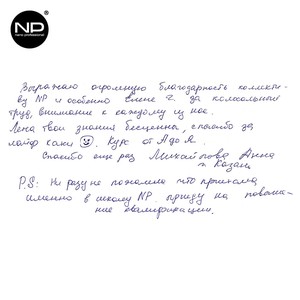 NP
nano professional
Выражаю огромную благодарность коллекти-
ву NP и особенно Елене Г. за колоссальный
труд, внимание к каждому из нас.
Лена твои знания бесценны, спасибо за
лайф хаки Курс от А до Я.
Спасибо ещё раз Михайлова Анна
г. Казань
P.S: Ни разу не пожалела что приехала
именно в школу NP. приеду на повыше-
ние квалификации.